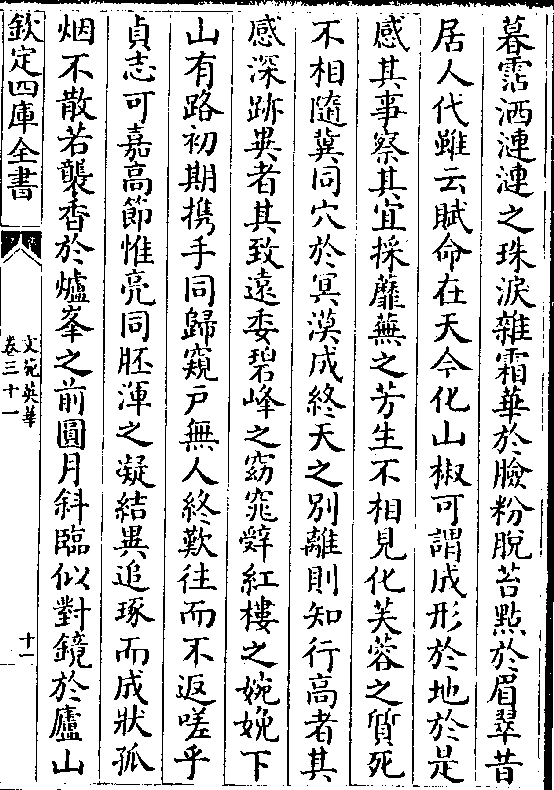 暮霑洒漣漣之珠淚雜霜華於臉粉脫苔㸃於眉翠昔
居人代雖云賦命在天今化山椒可謂成形於地於是
感其事察其宜採蘼蕪之芳生不相見化芙蓉之質死
不相隨冀同穴於冥漠成終天之別離則知行高者其
感深跡異者其致遠委碧峰之窈窕辤紅樓之婉娩下
山有路初期攜手同歸窺戸無人終歎往而不返嗟乎
貞志可嘉高節惟亮同胚渾之凝結異追琢而成狀孤
烟不散若襲香於爐峯之前圓月斜臨似對鏡於廬山
欽定四庫全書
文苑英華
卷三十一
十一